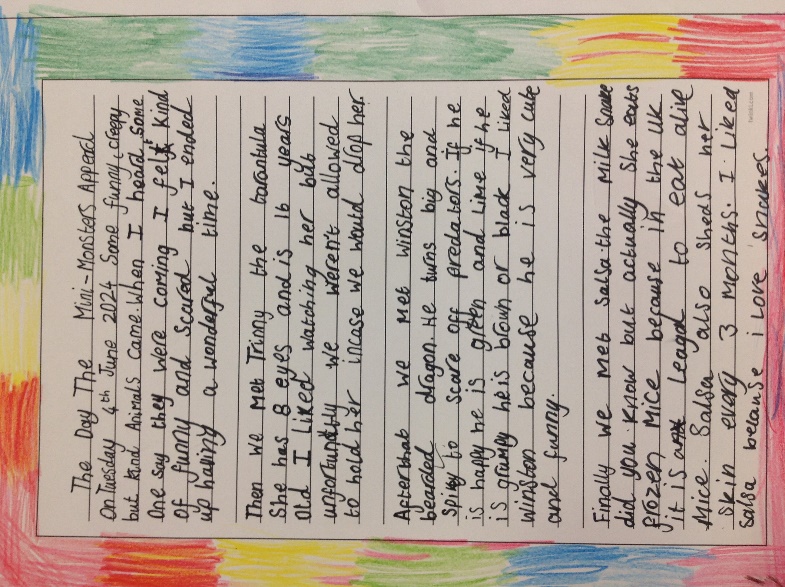 The Day The Mini-Monsters Appeard
On Tuesday 4th June 2024 Some funny, creepy
but kind Animals came. When I heard some
One say they were coming I felt kind
of funny and scared but I ended
up having a wonderful time.
Then we met Trinny the tarantula
She has 8 eyes and is 16 years
old I Liked watching her but
unfortuntly we weren't allowed
to hold her incase we would drop her
After that we met Winston the
bearded dragon. He turns big and
Spiky to scare off predators. If he
is happy he is green and Lime if he
is grumpy he is brown or black I Liked
Winston because he is very cute
and funny.
Finally we met Salsa the Milk Snake
did you know but actually She eats
frozen Mice because in the UK
it is Leagal to eat alive
Mice. Salsa also sheds her
skin every 3 months. I Liked
Salsa because i Love snakes.